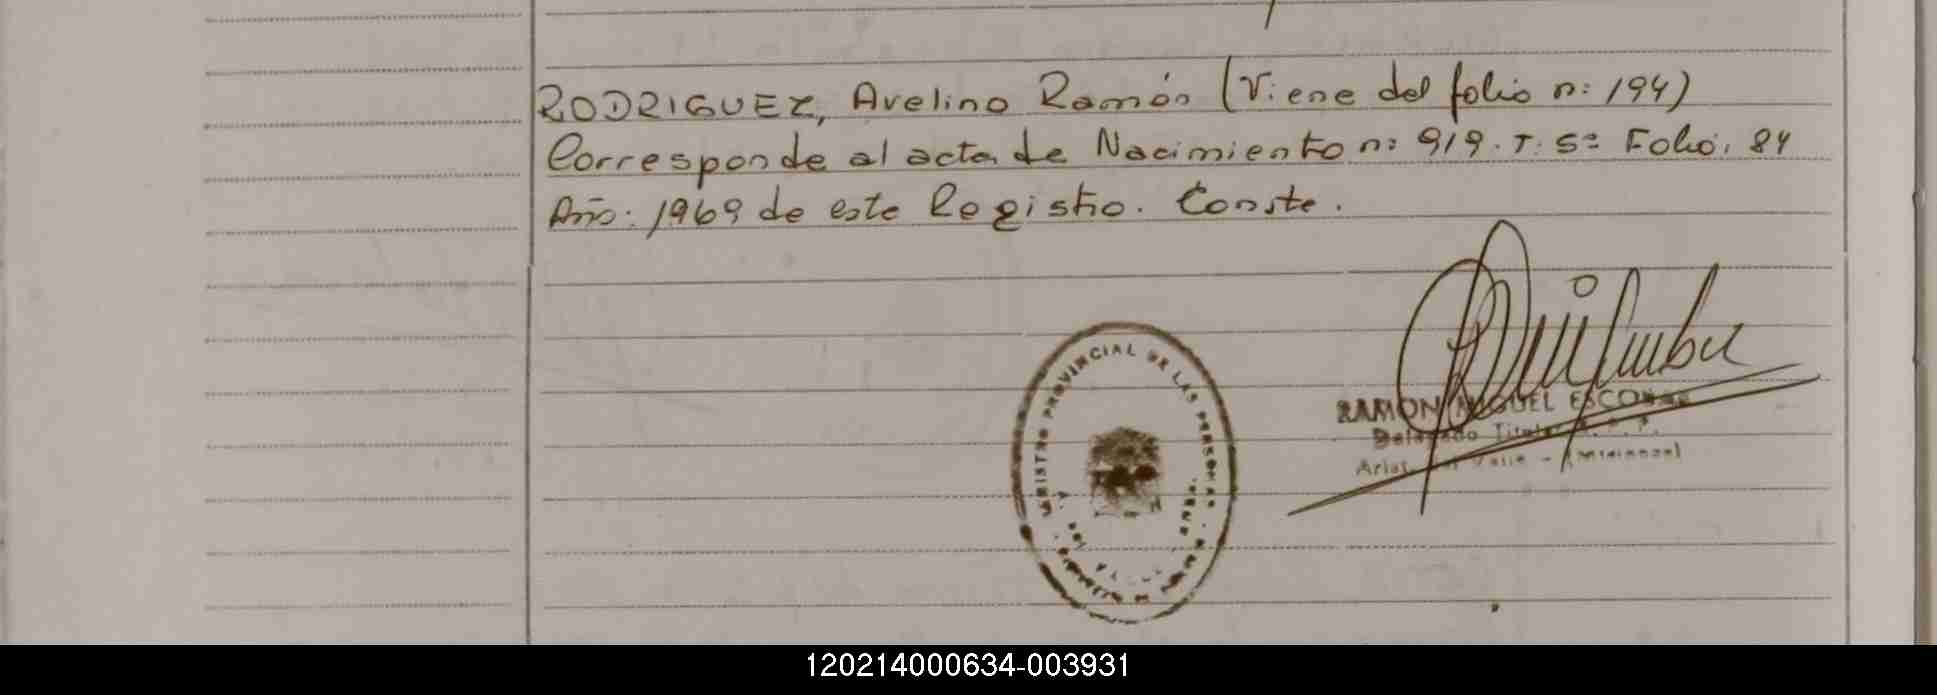 RODRIGUEZ, Avelino Ramón (Viene del folio n: 194)
Corresponde al acta de Nacimiento n: 919. T. 5º Folio: 84
Año: 1969 de este Registro. Conste.
REGISTRO PROVINCIAL DE LAS PERSONAS
RAMON MIGUEL ESCOBAR
Delegado Titular R. P. P.
120214000634-003931